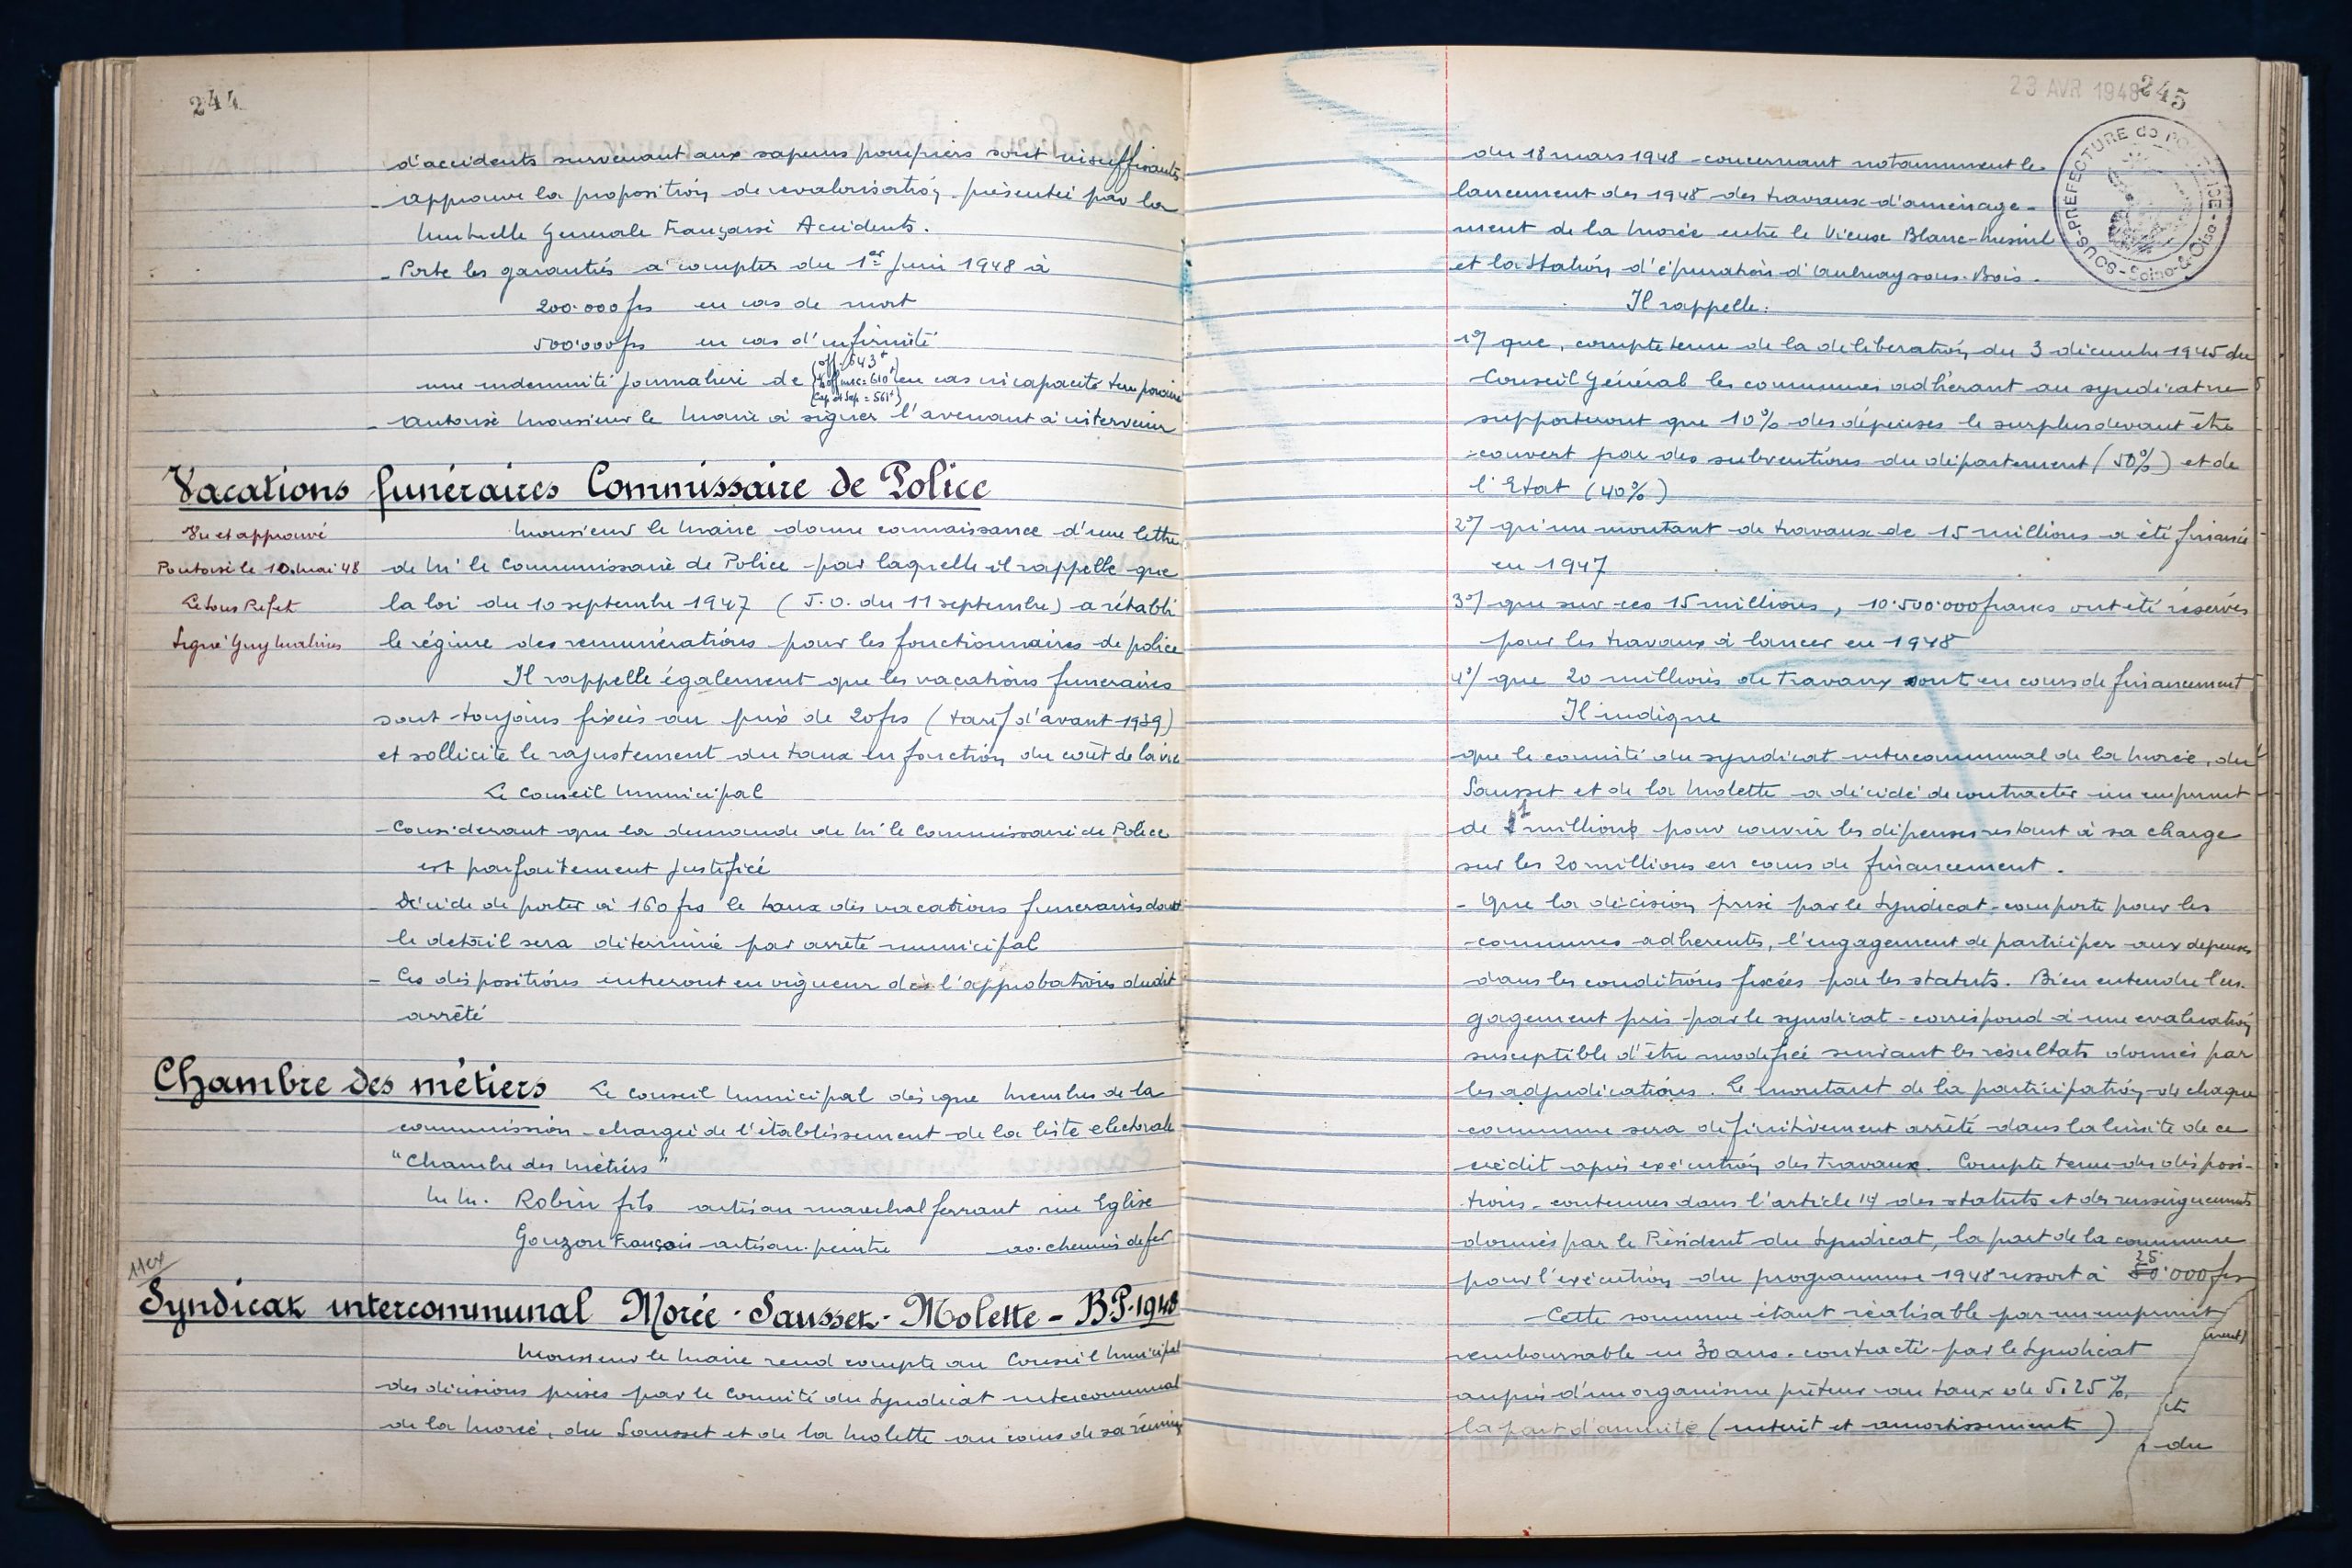 244
d'accidents survenant aux sapeurs pompiers sont insuffisants
- approuve la proposition de revalorisation présentée par la
Mutuelle Générale Française Accidents.
- Porte les garanties à compter du 1er Juin 1948 à
200.000 frs en cas de mort
500.000 frs en cas d'infirmité
off. 643f
une indemnité journalière de S/off = 610f en cas incapacité temporaire
Cap et Sap = 561f
- autorise Monsieur le Maire à signer l'avenant à intervenir
Vacations funéraires Commissaire de Police
Vu et approuvé
Pontoise le 10 mai 48
Le Sous Préfet
Signé Guy
Monsieur le Maire donne connaissance d'une lettre
de Mr le Commissaire de Police par laquelle il rappelle que
la loi du 10 septembre 1947 (J.O. du 11 septembre) a rétabli
le régime des rémunérations pour les fonctionnaires de police
Il rappelle également que les vacations funéraires
sont toujours fixées au prix de 20 frs (tarif d'avant 1939)
et sollicite le rajustement du taux en fonction du coût de la vie
Le Conseil Municipal
- Considérant que la demande de Mr le Commissaire de Police
est parfaitement justifiée
- Décide de porter à 160 frs le taux des vacations funéraires dont
le détail sera déterminé par arrêté municipal
- Ces dispositions entreront en vigueur dès l'approbation dudit
arrêté
Chambre des métiers Le Conseil Municipal désigne membres de la
commission chargée de l'établissement de la liste électorale
"Chambre des Métiers"
M.M. Robin fils artisan maréchal ferrant rue Eglise
Gouzon François artisan-peintre av. chemin de fer
11ex
Syndicat intercommunal Morée - Sausset - Molette - BP. 1948
Monsieur le Maire rend compte au Conseil Municipal
des décisions prises par le Comité du Syndicat intercommunal
de la Morée, du Sausset et de la Molette au cours de sa réunion
23 AVR 1948
245
SOUS-PREFECTURE de PONTOISE - Seine-&-Oise
du 18 mars 1948 concernant notamment le
lancement dès 1948 des travaux d'aménage-
ment de la Morée entre le Vieux Blanc-Mesnil
et la Station d'épuration d'Aulnay sous-Bois.
Il rappelle:
1°/ que, compte tenu de la délibération du 3 décembre 1945 du
Conseil Général les communes adhérant au syndicat ne
supporteront que 10% des dépenses le surplus devant être
couvert par des subventions du département (50%) et de
l'Etat (40%)
2°/ qu'un montant de travaux de 15 millions a été financé
en 1947
3°/ que sur ces 15 millions, 10.500.000 francs ont été réservés
pour les travaux à lancer en 1948
4°/ que 20 millions de travaux sont en cours de financement
Il indique
que le comité du syndicat intercommunal de la Morée, du
Sausset et de la Molette a décidé de contracter un emprunt
de 1 millions pour couvrir les dépenses restant à sa charge
sur les 20 millions en cours de financement.
- Que la décision prise par le Syndicat comporte pour les
communes adhérentes, l'engagement de participer aux dépenses
dans les conditions fixées par les statuts. Bien entendu l'en-
gagement pris par le syndicat correspond à une évaluation
susceptible d'être modifiée suivant les résultats donnés par
les adjudications. Le montant de la participation de chaque
commune sera définitivement arrêté dans la limite de ce
crédit après exécution des travaux. Compte tenu des disposi-
tions contenues dans l'article 14 des statuts et des renseignements
donnés par le Président du Syndicat, la part de la commune
25.
pour l'exécution du programme 1948 ressort à 50.000 frs
Cette somme étant réalisable par un emprunt
remboursable en 30 ans contracté par le Syndicat
auprès d'un organisme prêteur au taux de 5.25%.
la part d'annuité (intérêt et amortissement)
du